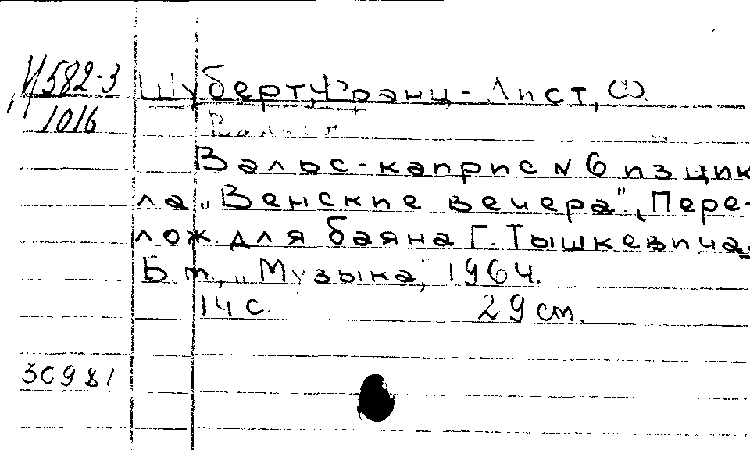 И582-3
1016
Шуберт, Франц, - Лист, Ф.
Вальс-каприс N 6 из цик
ла „Венские вечера", Пере-
лож для баяна Г. Тышкевича.
Б м, „Музыка", 1964.
14 с. 29 см.
30981